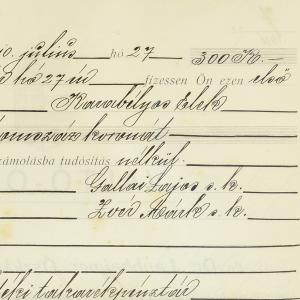 10. július hó 27 300 K.
e hó 27 én fizessen Ön ezen első
Karabélyos Elek
omszáz koronát
zámolásba tudósítás nélkül.
Gallai Lajos s. k.
Márk s. k.
déki takarékpénztár